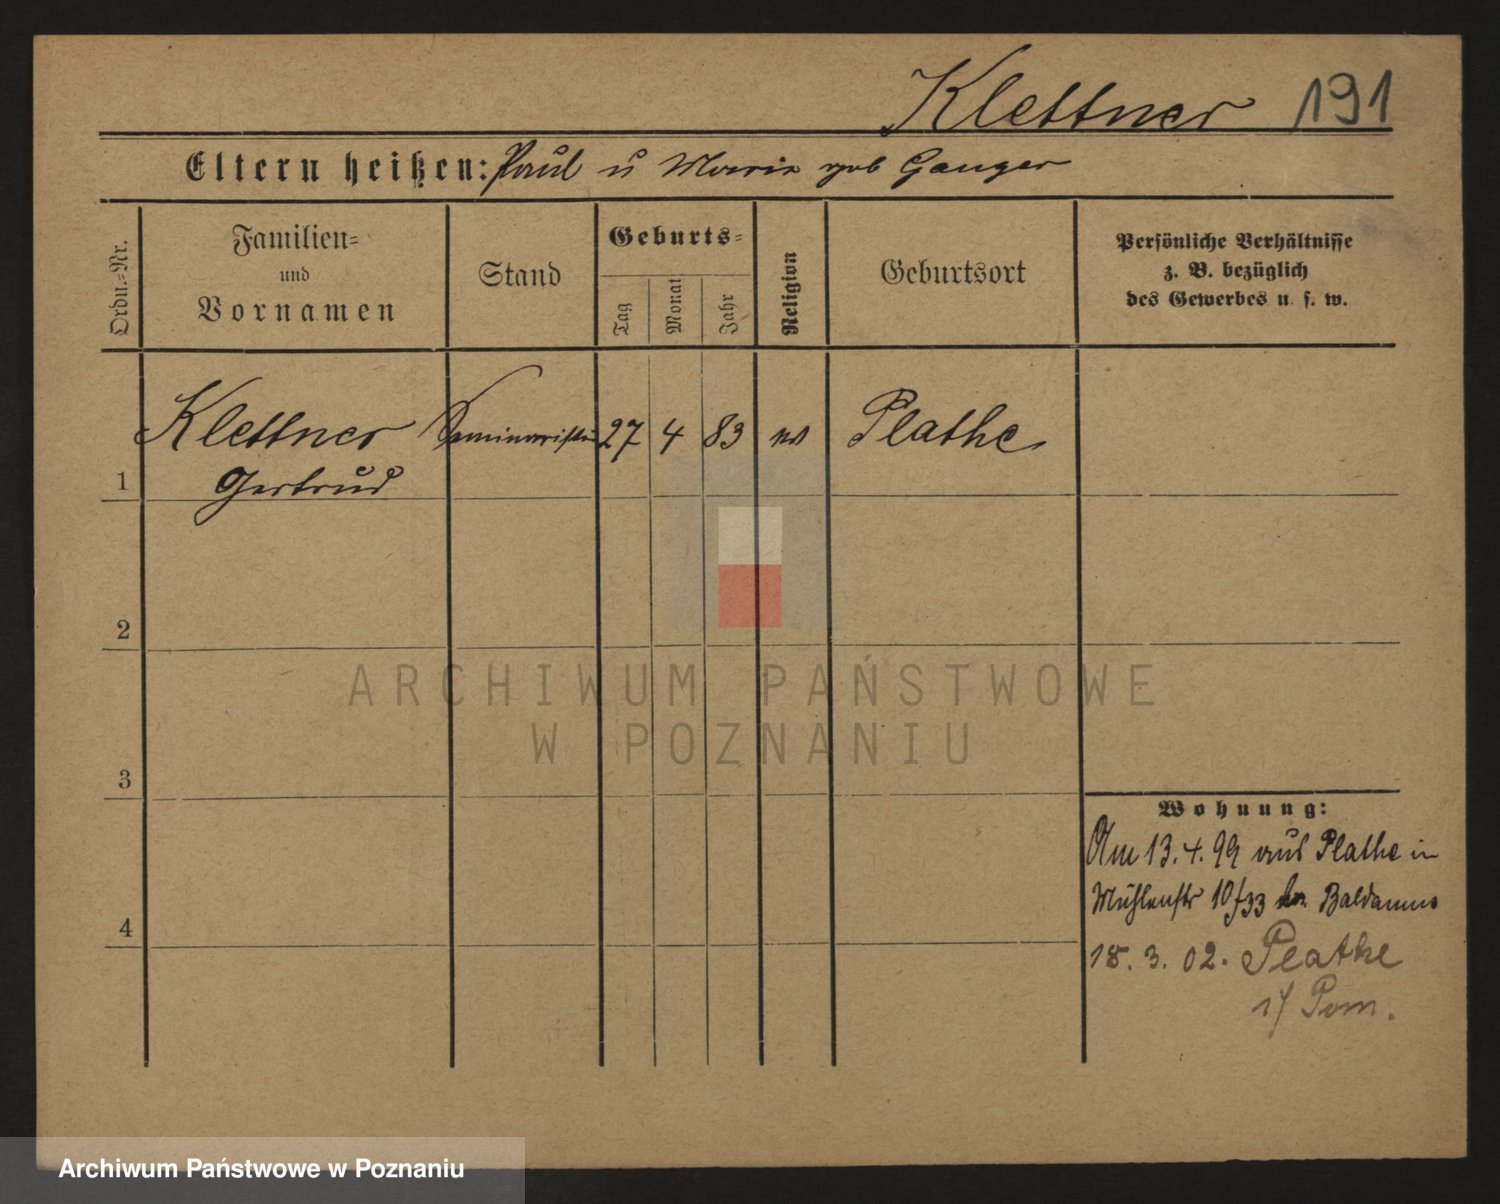 Klettner 191
Eltern heißen: Paul u Marie geb Ganger
Ordn.-Nr.
Familien-
und
Vornamen
Stand
Geburts-
Tag
Monat
Jahr
Religion
Geburtsort
Persönliche Verhältnisse
z. B. bezüglich
des Gewerbes u. s. w.
Klettner Seminaristin 27 4 83 ev Plathe
1 Gertrud
2
ARCHIWUM PAŃSTWOWE
W POZNANIU
3
Wohnung:
Am 13.4.99 aus Plathe in
Mühlenstr 10/33 Baldamus
4
18.3.02. Plathe
i/ Pom.
Archiwum Państwowe w Poznaniu